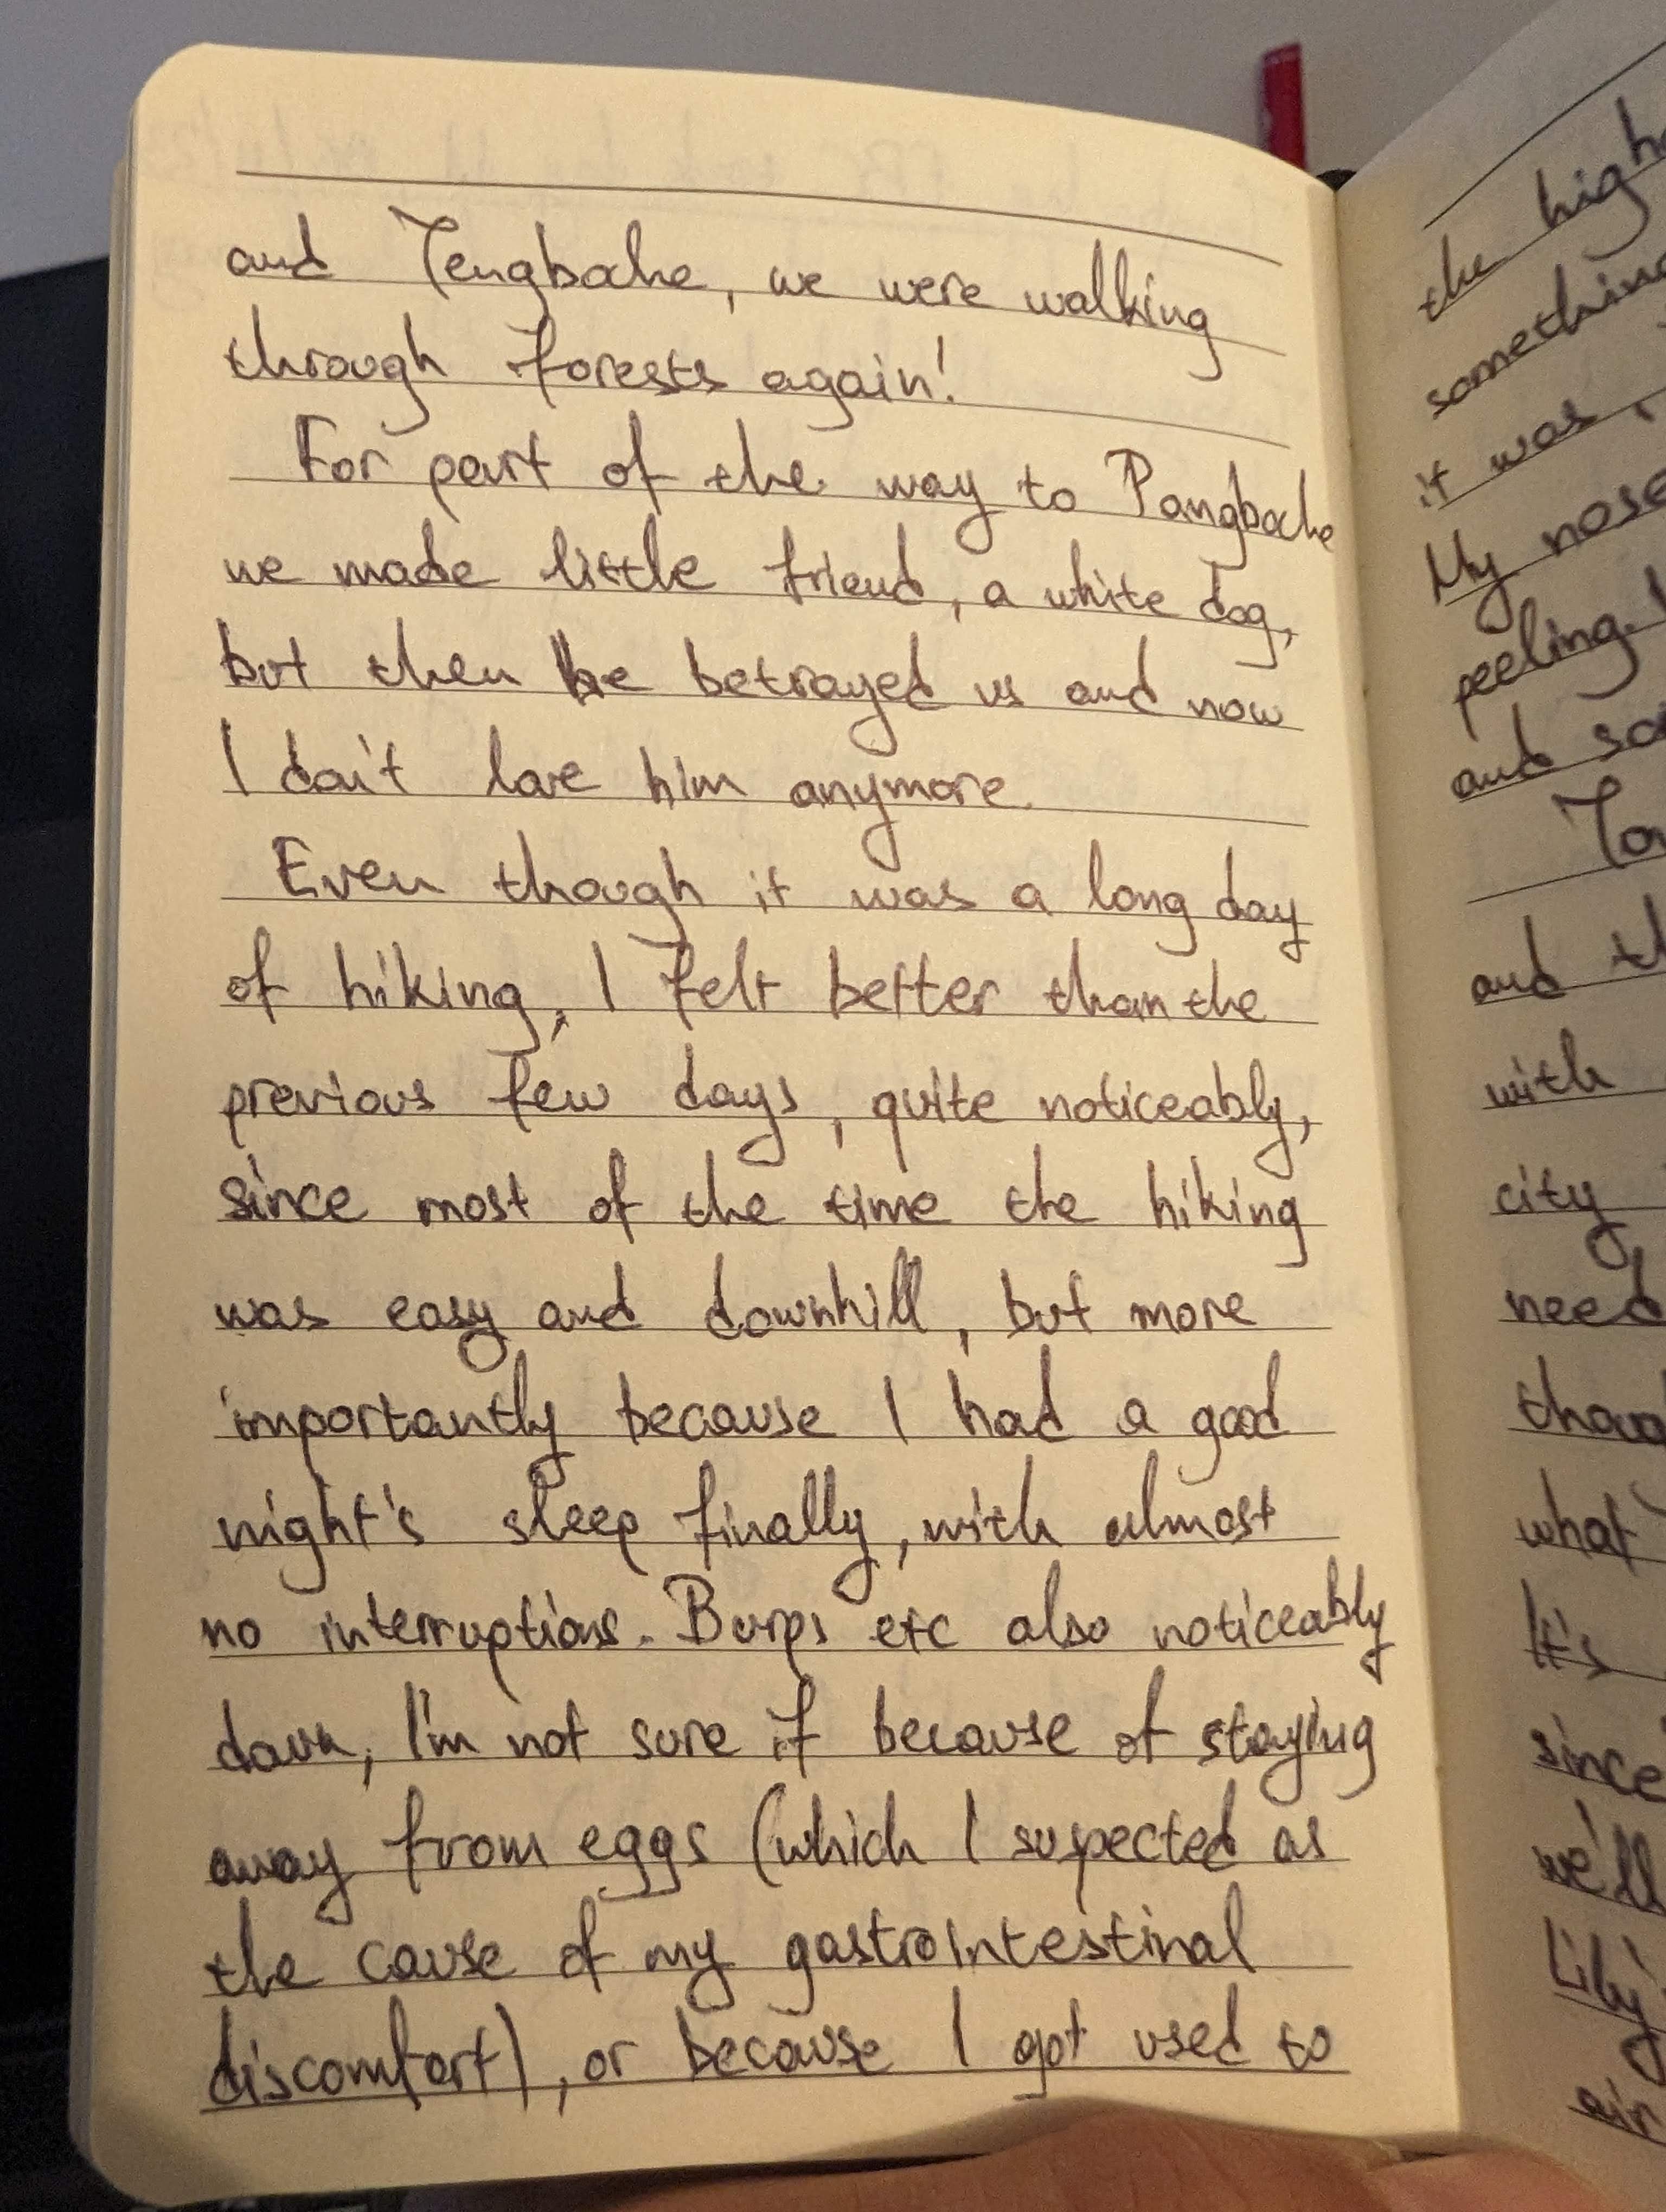 and Tengboche, we were walking
through forests again!
For part of the way to Pangboche
we made little friend, a white dog,
but then he betrayed us and now
I don't love him anymore.
Even though it was a long day
of hiking, I felt better than the
previous few days, quite noticeably,
since most of the time the hiking
was easy and downhill, but more
importantly because I had a good
night's sleep finally, with almost
no interruptions. Burps etc also noticeably
down, I'm not sure if because of staying
away from eggs (which I suspected as
the cause of my gastrointestinal
discomfort), or because I got used to
the high
something
it was
My nose
peeling.
and
and
with
city
need
what
It's
since
we'll
Lily
air